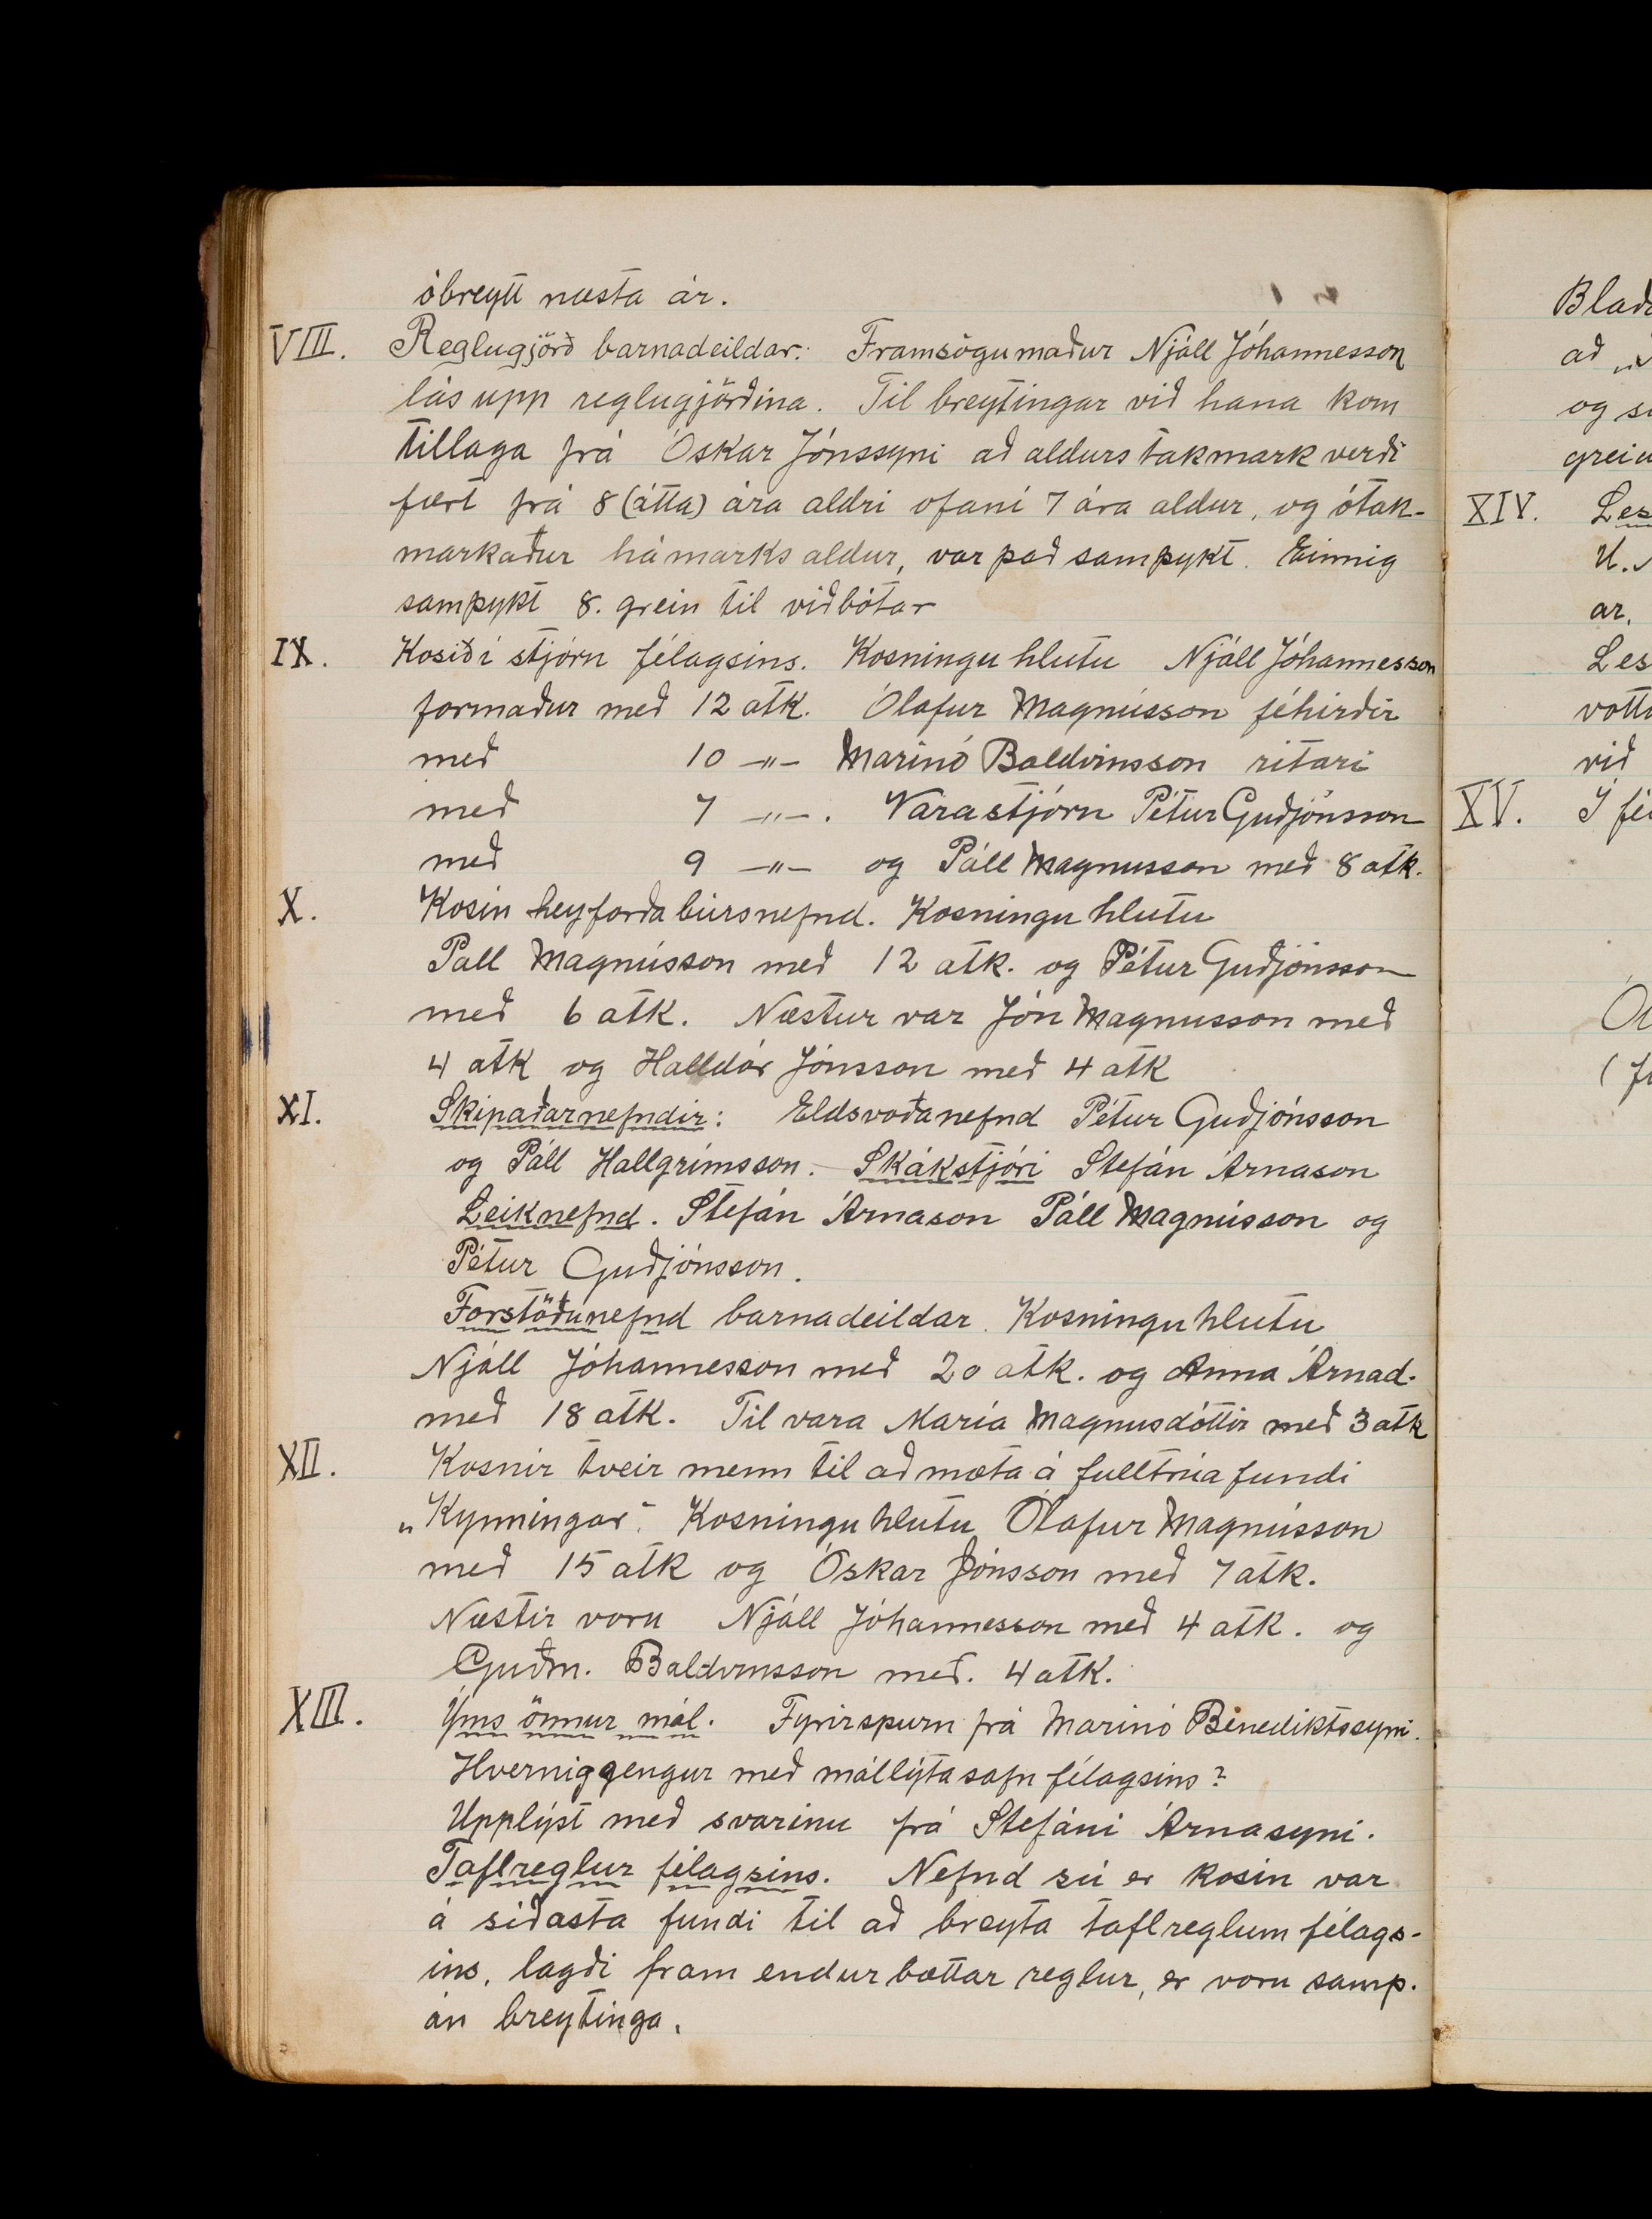 óbreytt næsta ár.
VIII. Reglugjörð barnadeildar: Framsögumaður Njáll Jóhannesson
lás upp reglugjörðina. Til breytingar við hana kom
tillaga frá Óskar Jónssyni að aldurstakmark verði
fært frá 8 (átta) ára aldri ofaní 7 ára aldur, og ótak-
markaður hámarks aldur, var það samþykt. Einnig
samþykt 8. grein til viðbótar
IX. Kosið í stjórn félagsins. Kosningu hlutu Njáll Jóhannesson
formaður með 12 atk. Ólafur Magnússon féhirðir
með 10 -"- Marinó Baldvinsson ritari
með 7 -"-. Varastjórn Pétur Guðjónsson
með 9 -"- og Páll Magnusson með 8 atk.
X. Kosin heyforðabúrsnefnd. Kosningu hlutu
Páll Magnússon með 12 atk. og Pétur Guðjónsson
með 6 atk. Næstur var Jón Magnusson með
4 atk og Halldór Jónsson með 4 atk
XI. Skipaðarnefndir: Eldsvoðanefnd Pétur Guðjónsson
og Páll Hallgrímsson. Skákstjóri Stefán Árnason
Leiknefnd. Stefán Árnason Páll Magnússon og
Pétur Guðjónsson.
Forstöðunefnd barnadeildar. Kosningu hlutu
Njáll Jóhannesson með 20 atk. og Anna Árnad.
með 18 atk. Til vara María Magnusdóttir með 3 atk
XII. Kosnir tveir menn til að mæta á fulltrúafundi
„Kynningar". Kosningu hlutu Ólafur Magnússon
með 15 atk og Óskar Jónsson með 7 atk.
Næstir voru Njáll Jóhannesson með 4 atk. og
Guðm. Baldvinsson með. 4 atk.
XIII. Ýms önnur mál. Fyrirspurn frá Marinó Benediktssyni.
Hvernig gengur með mállýtasafn félagsins?
Upplýst með svarinu frá Stefáni Árnasyni.
Taflreglur félagsins. Nefnd sú er kosin var
á síðasta fundi til að breyta taflreglum félags-
ins, lagði fram endurbættar reglur, er voru samþ.
án breytinga.
að
og
XIV.
ar.
Les
við
XV. Í